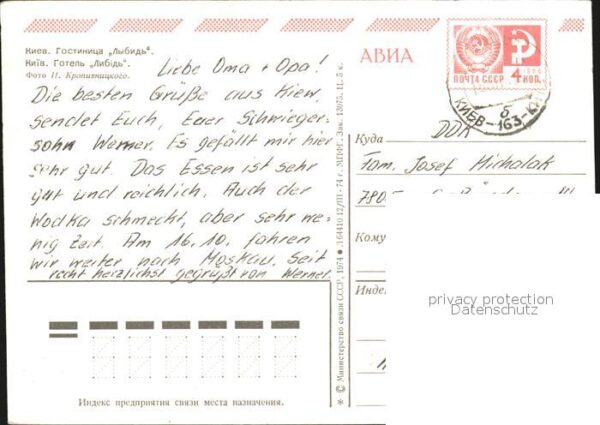 Киев. Гостиница „Лыбидь".
Київ. Готель „Либідь".
Фото И. Кропивницкого.
Liebe Oma + Opa!
Die besten Grüße aus Kiew,
sendet Euch, Euer Schwieger-
sohn Werner. Es gefällt mir hier
sehr gut. Das Essen ist sehr
gut und reichlich. Auch der
Wodka schmeckt, aber sehr we-
nig Zeit. Am 16.10. fahren
wir weiter nach Moskau. Seit
recht herzlichst gegrüßt von Werner.
Индекс предприятия связи места назначения.
* © Министерство связи СССР, 1974 • З 64410 12/III-74 г. МПФГ. Зак. 12075. Ц. 5 к.
АВИА
ПОЧТА СССР
1966
4 КОП.
КИЕВ-163
DDR
Куда
Fam. Josef Michalak
Кому
Инде
privacy protection
Datenschutz